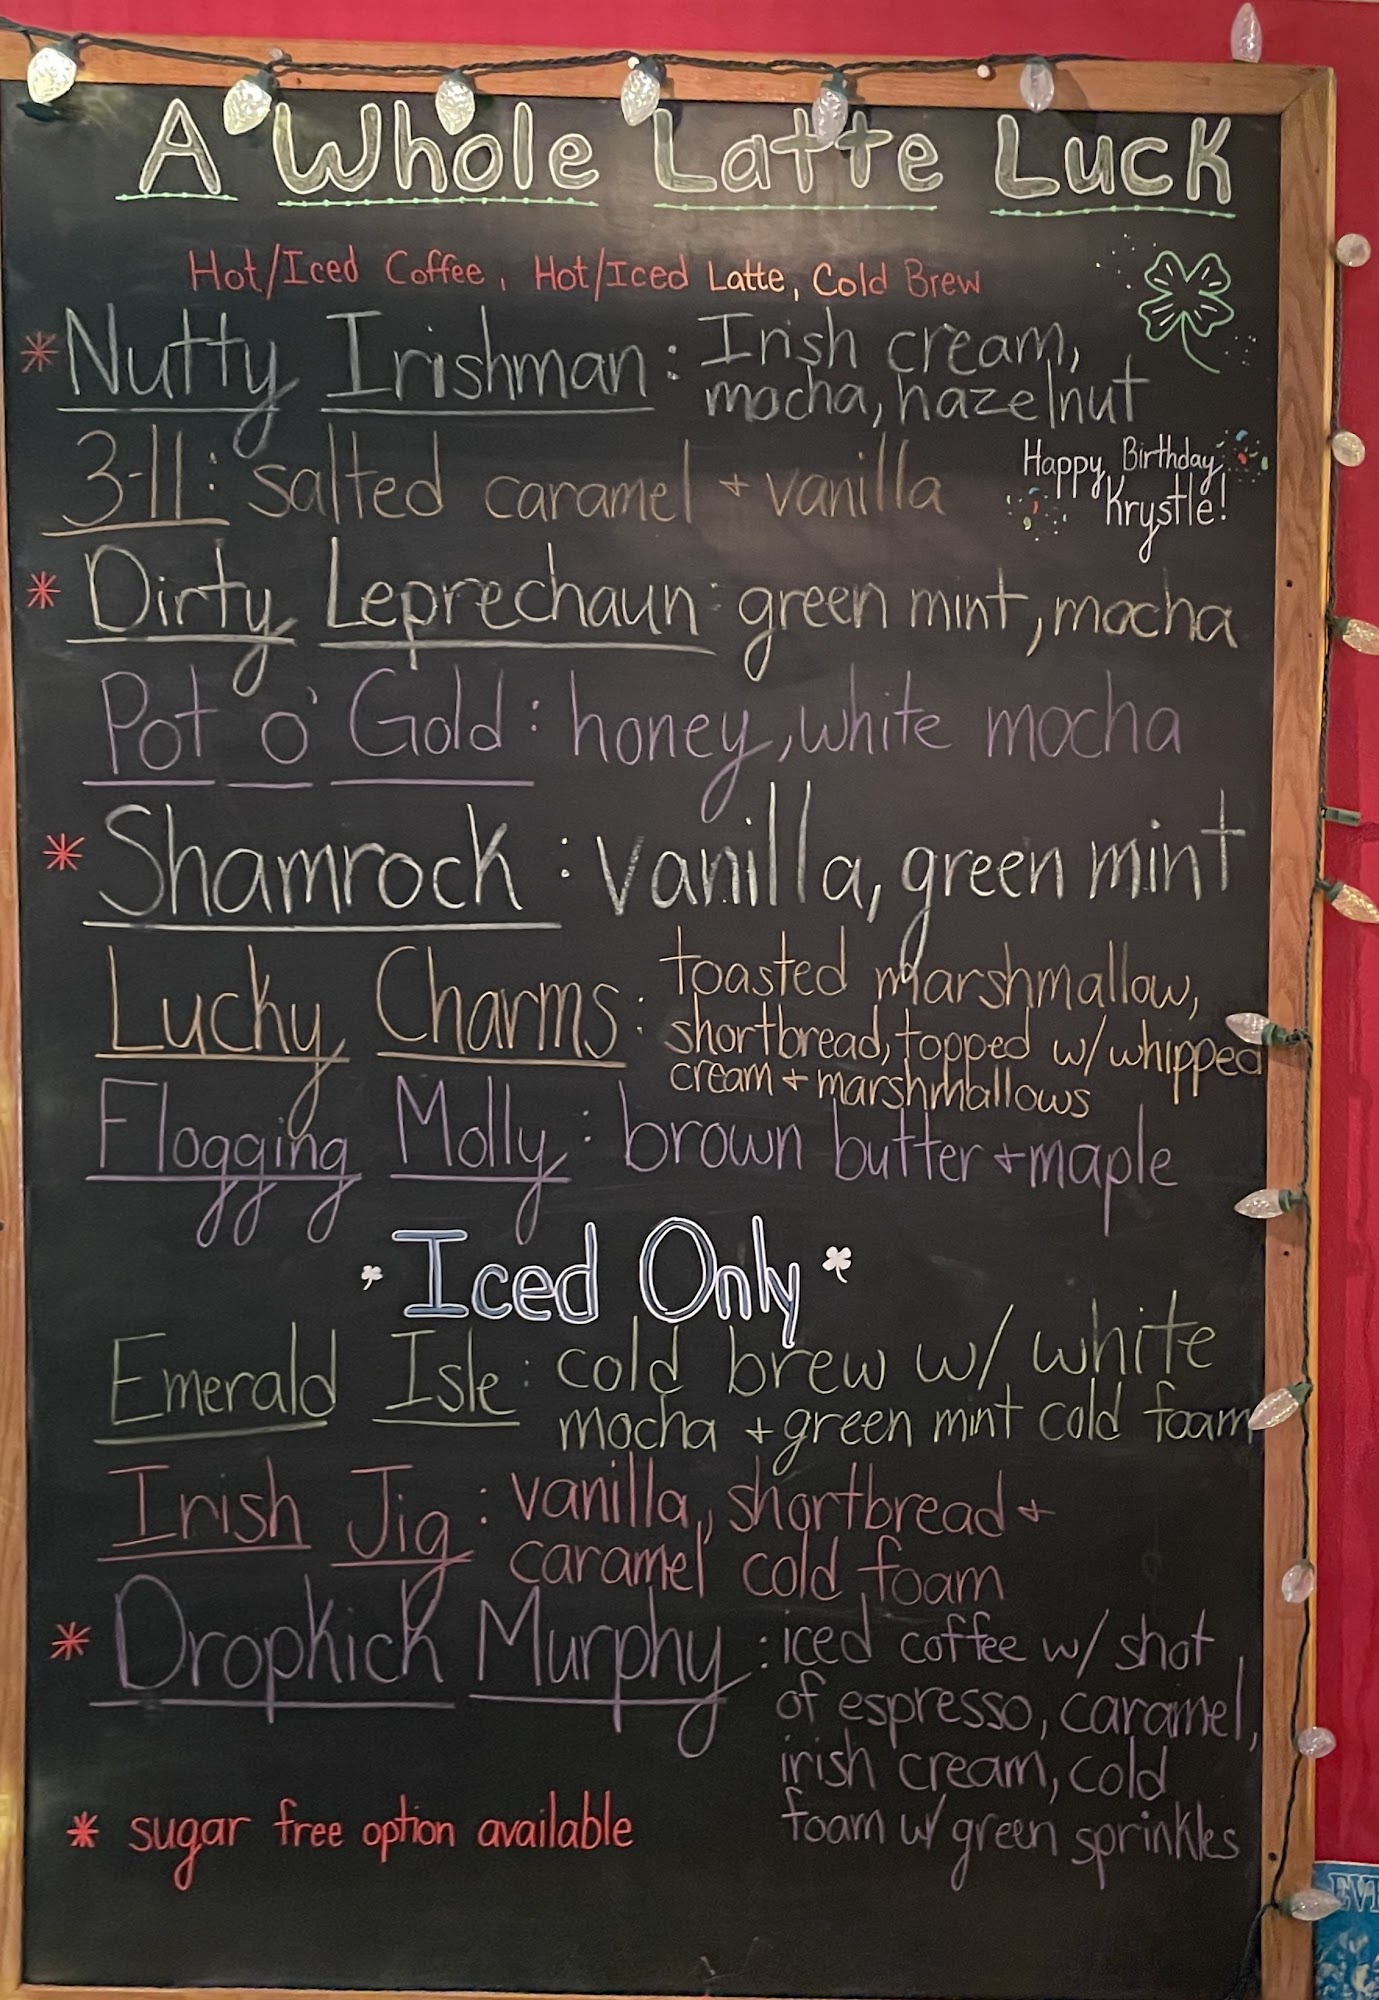 A Whole Latte Luck
Hot/Iced Coffee, Hot/Iced Latte, Cold Brew
* Nutty Irishman: Irish cream,
mocha, hazelnut
3-11: salted caramel + vanilla
Happy Birthday
Krystle!
* Dirty Leprechaun: green mint, mocha
Pot o' Gold: honey, white mocha
* Shamrock: vanilla, green mint
Lucky Charms: toasted marshmallow,
shortbread, topped w/ whipped
cream + marshmallows
Flogging Molly: brown butter + maple
Iced Only
Emerald Isle: cold brew w/ white
mocha + green mint cold foam
Irish Jig: vanilla, shortbread +
caramel cold foam
* Dropkick Murphy: iced coffee w/ shot
of espresso, caramel,
irish cream, cold
foam w/ green sprinkles
* sugar free option available